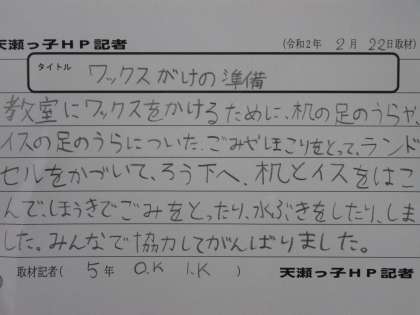 天瀬っ子HP記者
(令和2年 2月 22日取材)
タイトル
ワックスがけの準備
教室にワックスをかけるために、机の足のうらや、
イスの足のうらについた、ごみやほこりをとって、ランド
セルをかづいて、ろう下へ、机とイスをはこ
んで、ほうきでごみをとったり、水ぶきをしたり、しま
した。みんなで協力してがんばりました。
取材記者( 5年 O.K I.K )
天瀬っ子HP記者